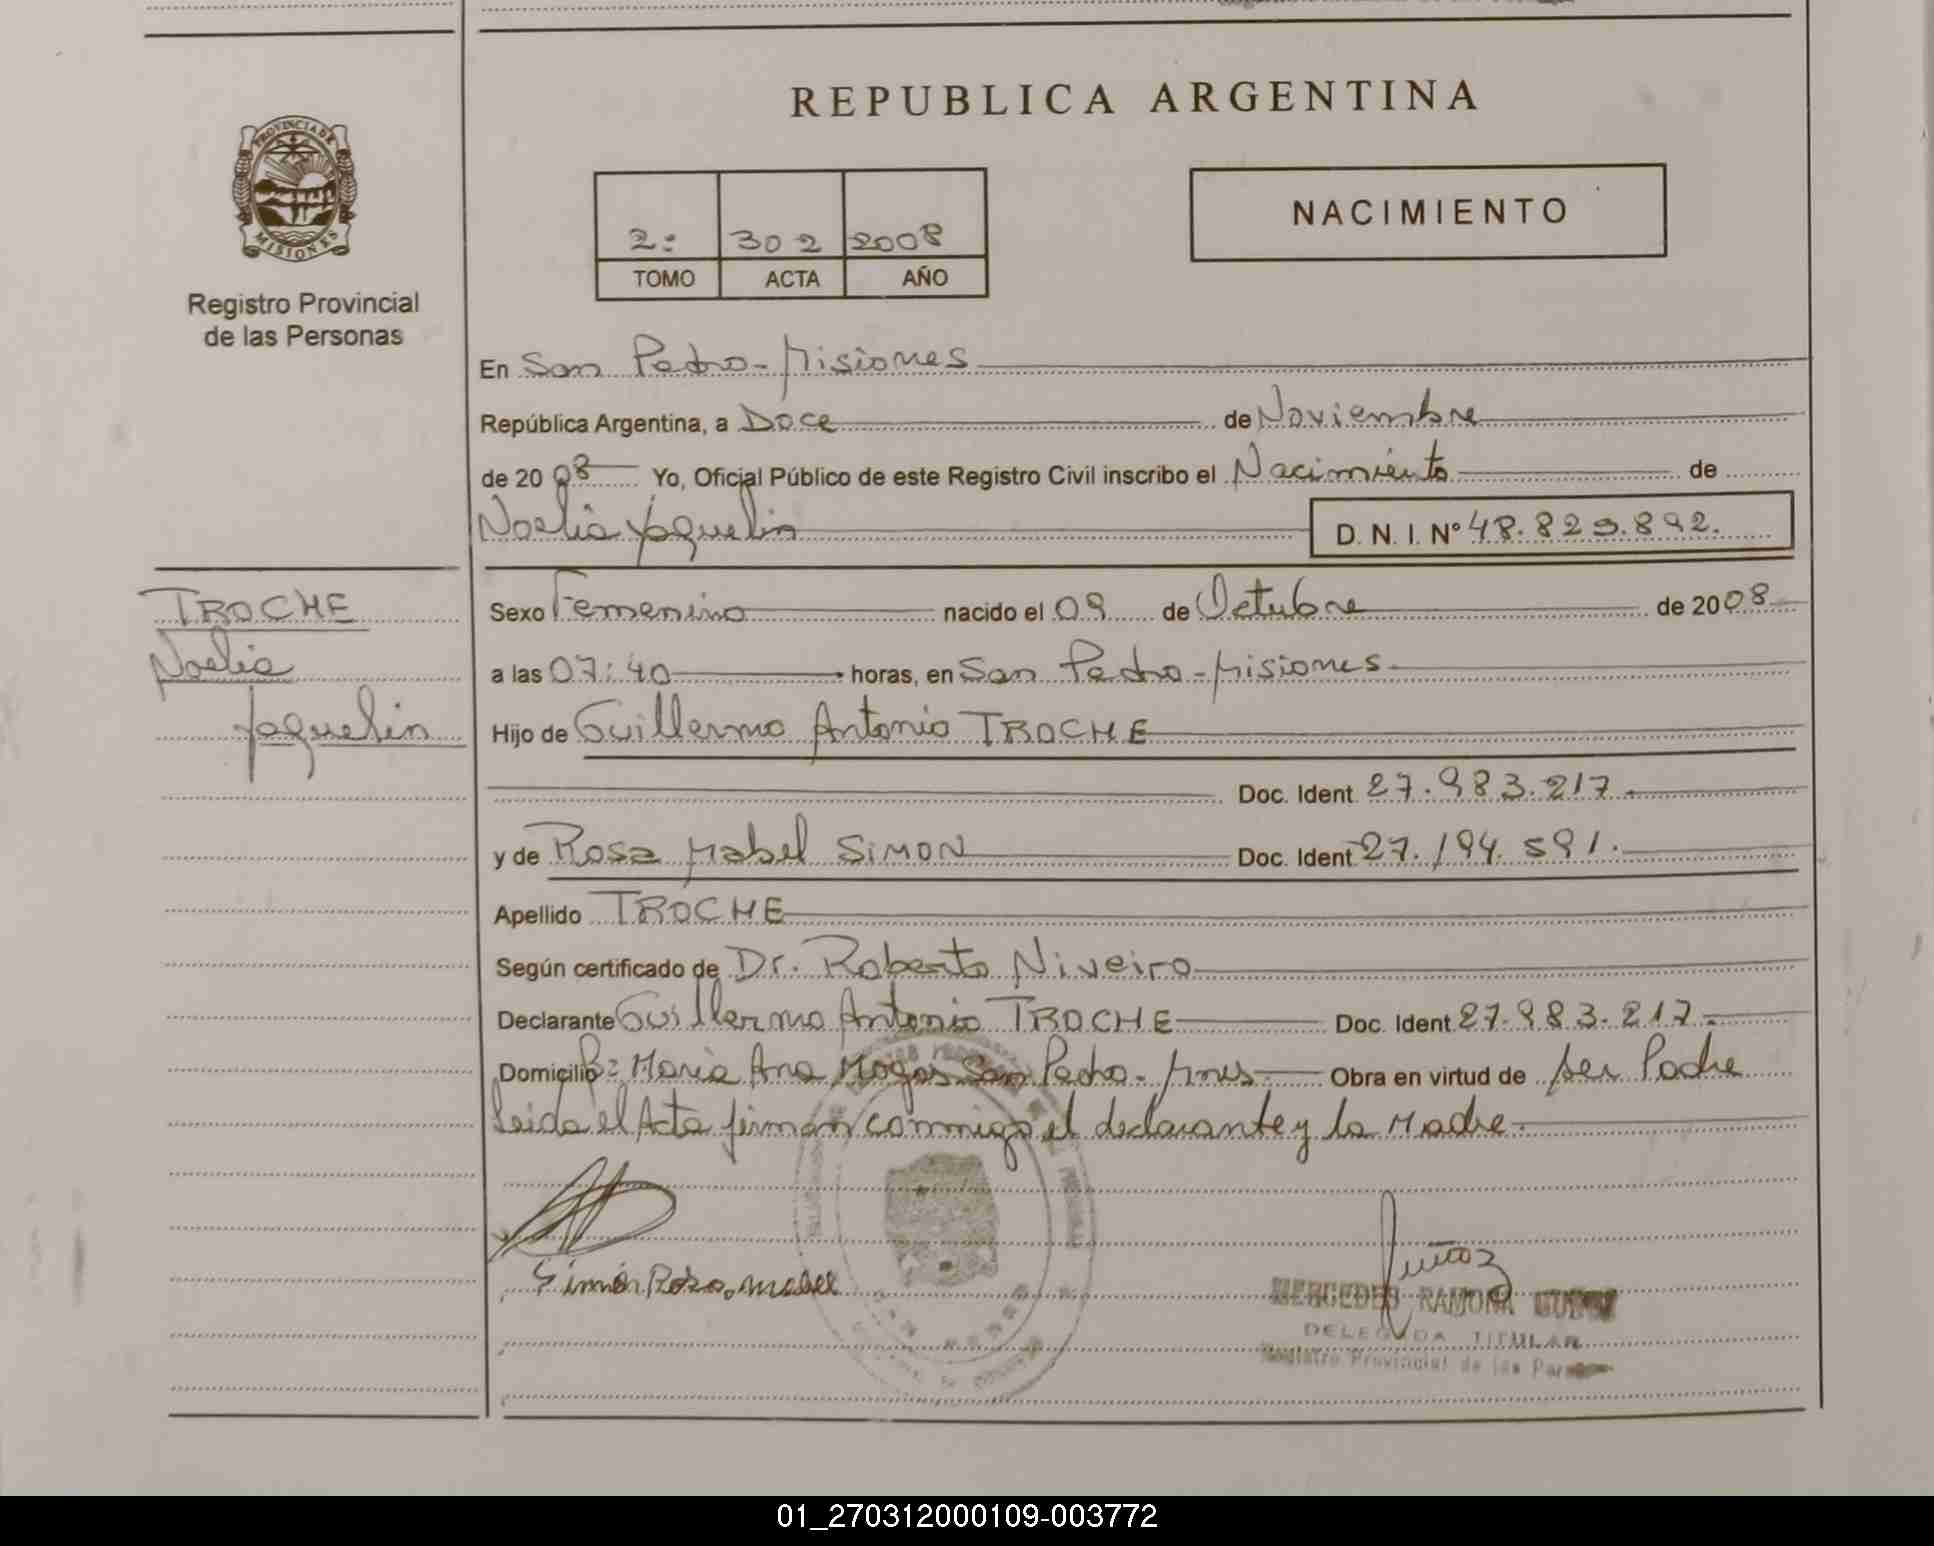 REPUBLICA ARGENTINA
PROVINCIA DE
MISIONES
Registro Provincial
de las Personas
2: 302 2008
TOMO ACTA AÑO
NACIMIENTO
En San Pedro - Misiones
República Argentina, a Doce de Noviembre
de 2008 Yo, Oficial Público de este Registro Civil inscribo el Nacimiento de
Noelia Yaquelin D. N. I. Nº 48.823.892.
TROCHE
Noelia
Yaquelin
Sexo Femenino nacido el 09 de Octubre de 2008
a las 07:40 horas, en San Pedro - Misiones
Hijo de Guillermo Antonio TROCHE
Doc. Ident. 27.983.217.
y de Rosa Mabel SIMON Doc. Ident. 27.194.591.
Apellido TROCHE
Según certificado de Dr. Roberto Niveiro
Declarante Guillermo Antonio TROCHE Doc. Ident. 27.983.217.
Domicilio Bº María Ana Mogas San Pedro - Mnes Obra en virtud de ser Padre
Leida el Acta firman conmigo el declarante y la Madre.
Simón Rosa Mabel
MERCEDES RAMONA
DELEGADA TITULAR
Registro Provincial de las
01_270312000109-003772